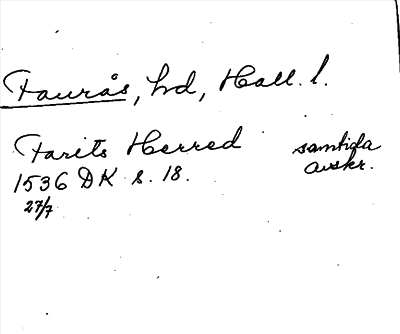 Faurås, hd, Hall. l.
Farits Herred samtida
1536 DK s. 18. avskr.
27/7